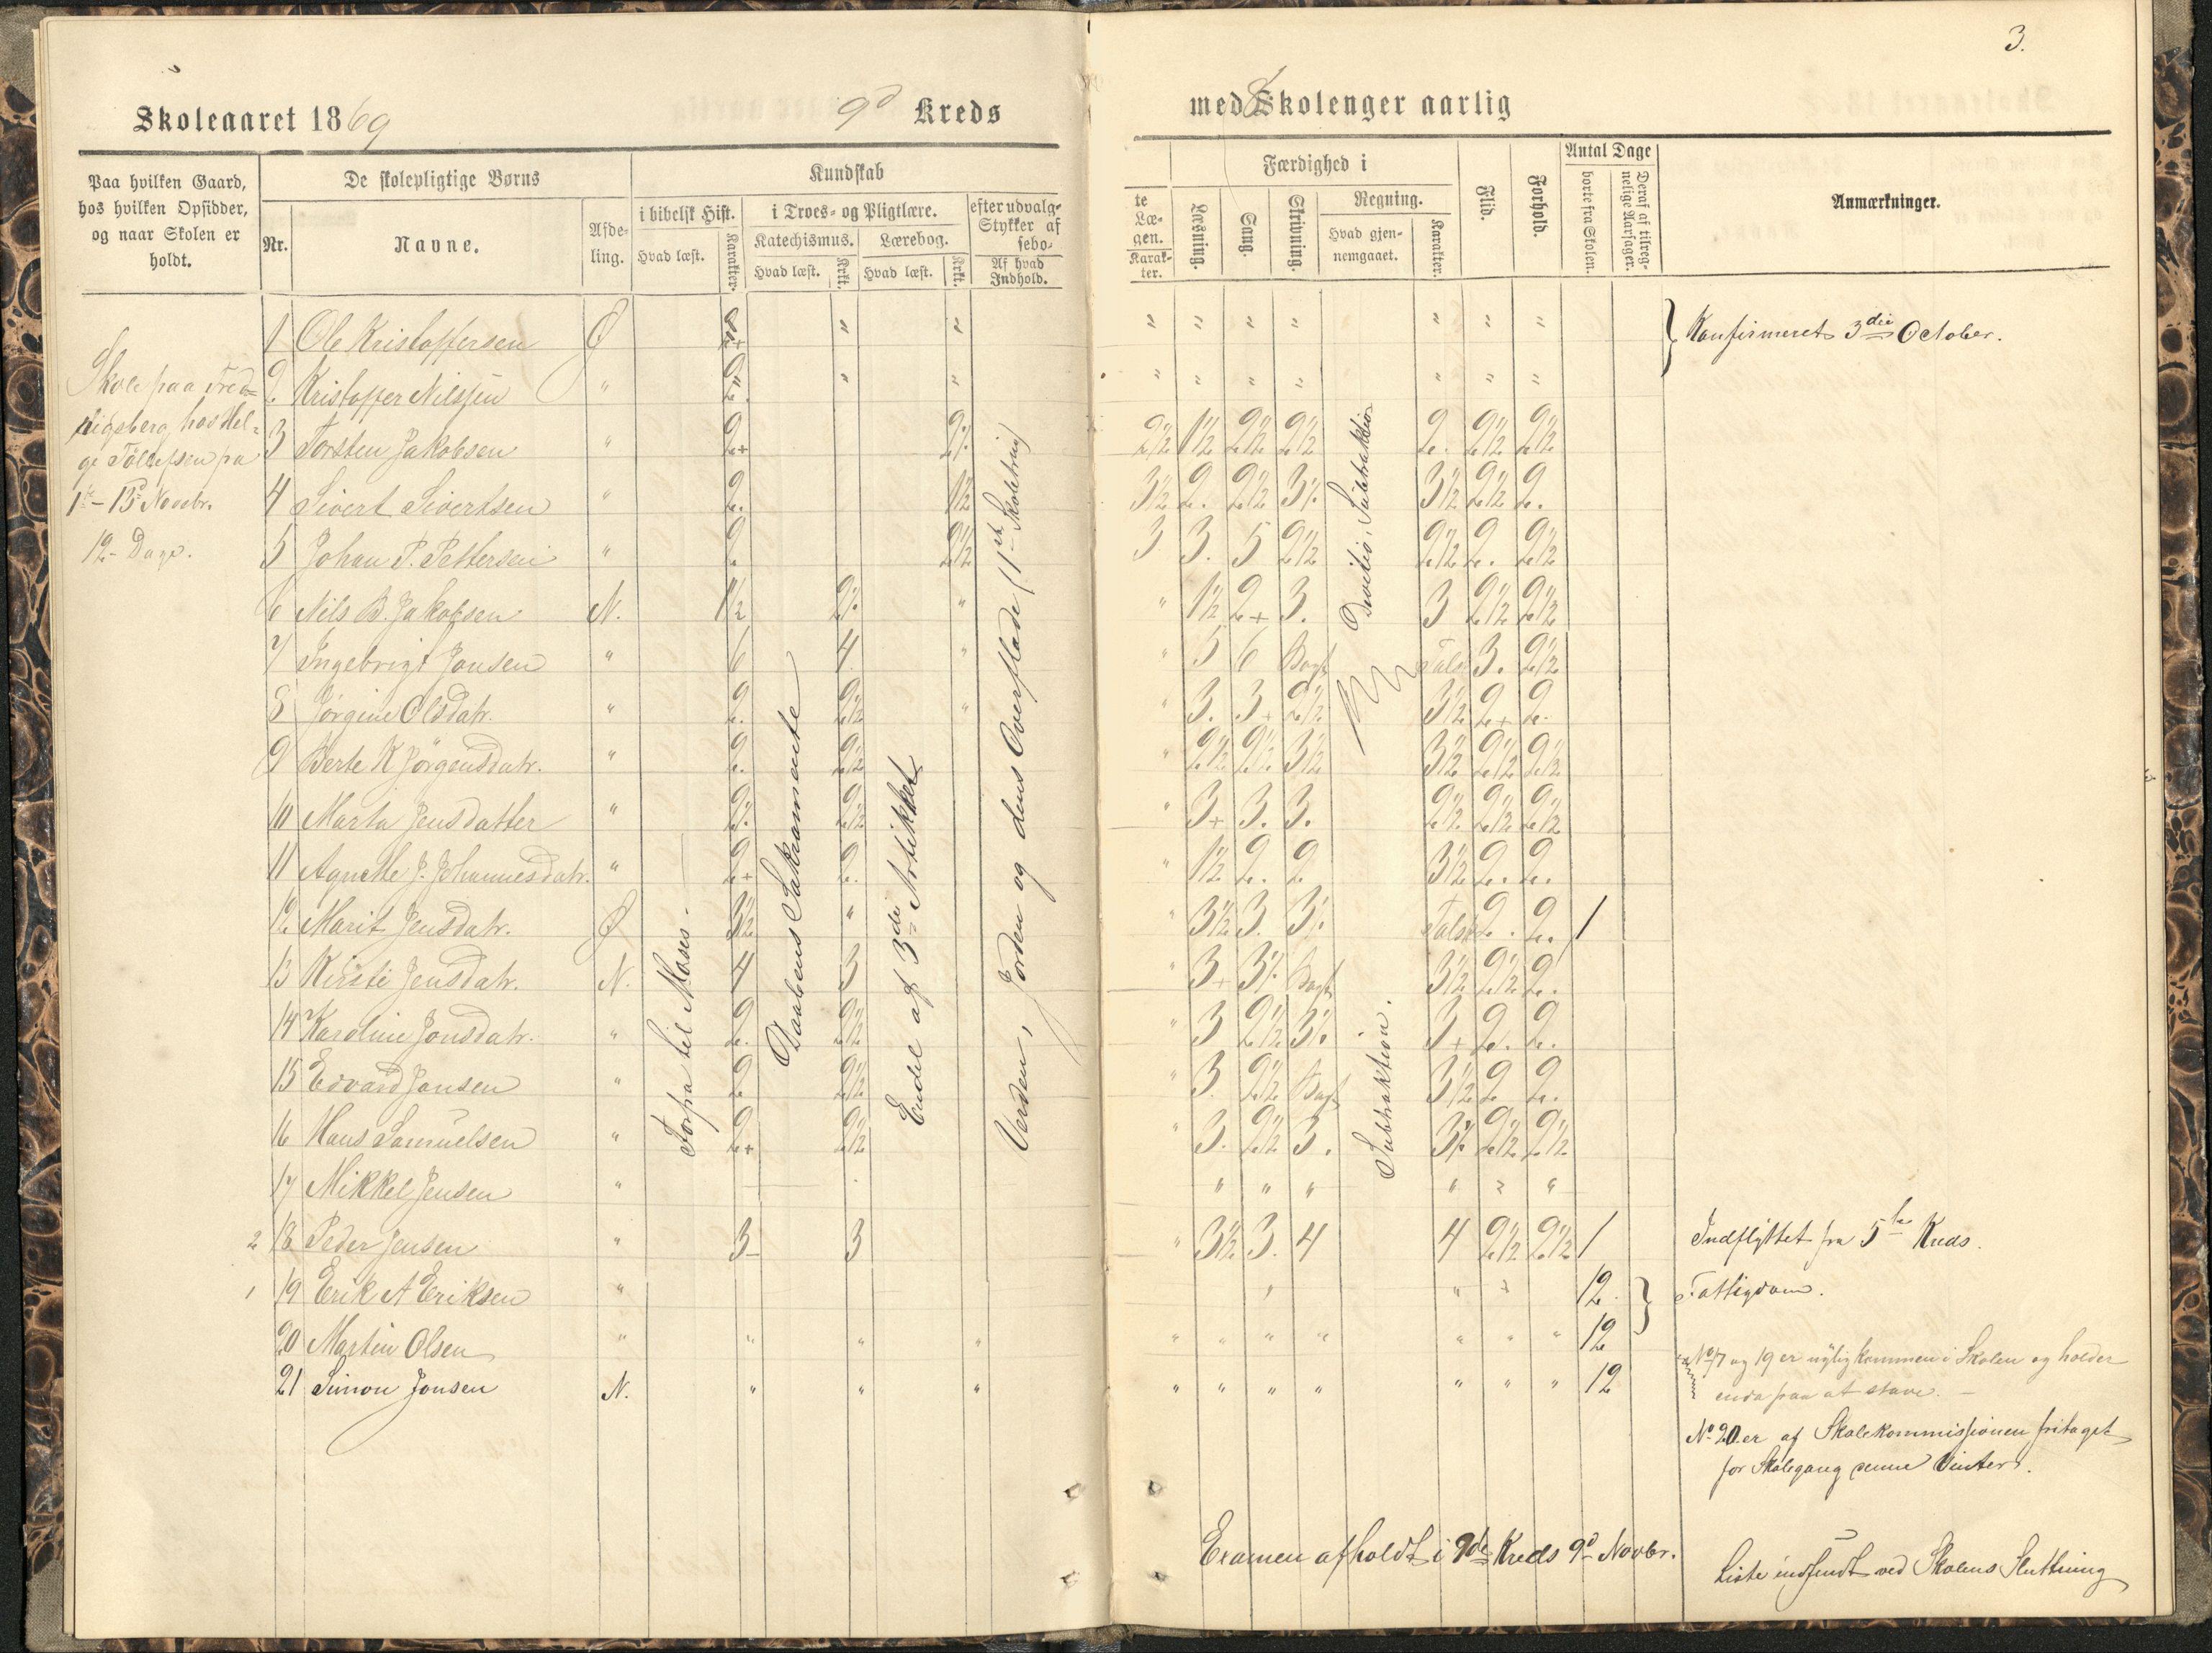 3.
Skoleaaret 1869 9d Kreds med 8 Skolenger aarlig
Paa hvilken Gaard,
hos hvilken Opsidder,
og naar Skolen er
holdt.
De skolepligtige Børns
Nr.
Navne.
Afde-
ling.
Kundskab
i bibelsk Hist.
Hvad læst.
Karakter.
i Troes- og Pligtlære.
Katechismus.
Hvad læst.
Krkt.
Lærebog.
Hvad læst.
Krkt.
efter udvalg-
Stykker af
sebo-
Af hvad
Indhold.
te
Læ-
gen.
Karak-
ter.
Færdighed i
Læsning.
Sang.
Skrivning.
Regning.
Hvad gjen-
nemgaaet.
Karakter.
Flid.
Forhold.
Antal Dage
borte fra Skolen.
Deraf af tilreg-
nelige Aarsager.
Anmærkninger.
Skole paa Fred=
rigsberg, hos Hel=
ge Tollefsen fra
1te - 13de Novbr.
12 Dage.
1 Ole Kristoffersen Ø 2+ " " " " " " " " " Konfirmeret 3die October.
2. Kristoffer Nilssen " 2. " " " " " " " " "
3 Torsten Jakobsen " 2+ 2% 2½ 1½ 2½ 2½ 2. 2½ 2½
4 Sivert Sivertsen " 2. 1½ 3½ 2. 2½ 3% 3½ 2½ 2.
5 Johan P. Pettersen " 2. 2½ 3 3. 5 2½ 2½ 2. 2½
6 Nils B. Jakobsen N. 1½ 2% " " 1½ 2+ 3. 3 2½ 2½
7 Ingebrigt Jonsen " 6 4. " " 5 6 Bogst Tals 3. 2½
8 Jørgine Olsdatr. " 2. 2½ " " 3. 3+ 2½ 3½ 2+ 2.
9 Berte K Jörgensdatr. " 2. 2½ " 2½ 2% 3½ 3½ 2½ 2½
10 Marta Jensdatter " 2% 2½ " 3+ 3. 3. 2½ 2½ 2½
11 Agnethe J. Johannesdatr. " 2+ 2. " 1½ 2. 2 3½ 2. 2.
12 Marit Jensdatr. Ø 3½ " " 3½ 3. 3% Tals 2. 2. 1
13 Kirsti Jensdatr. N. 4 3 " 3+ 3% Bogst 3½ 2½ 2.
14 Karoline Jonsdatr. " 2. 2½ " 3 2½ 3% 3+ 2. 2.
15 Edvard Jonsen " 2 2½ " 3. 2½ Bogst 3½ 2 2.
16 Hans Samuelsen " 2+ 2½ " 3. 2½ 3. 3% 2½ 2½
17 Mikkel Jensen " " " " " " "
2 18 Peder Jensen " 3- 3 " 3½ 3. 4 4 2½ 2½ 1 Indflyttet fra 5te Kreds.
1 19 Erik A Eriksen " " " " 12. Fattigdom.
20 Martin Olsen " " " " " " " " " " " 12
21 Simon Jonsen N. " " " " " " " " " " 12
Forfra til Moses.
Daabens Sakramente
Endel af 3die Artikkel
Verden, Jorden og dens Overflade (1ste Skoletrin)
Devitio, Subtraktion
Subtraktion.
No 17 og 19 er nylig kommen i Skolen og holder
enda paa at stave. -
No 20. er af Skolekommissionen fritaget
for Skolegang denne Vinter.
Examen afholdt i 9de Kreds 9d Novbr.
Liste indsendt ved Skolens Sluttning